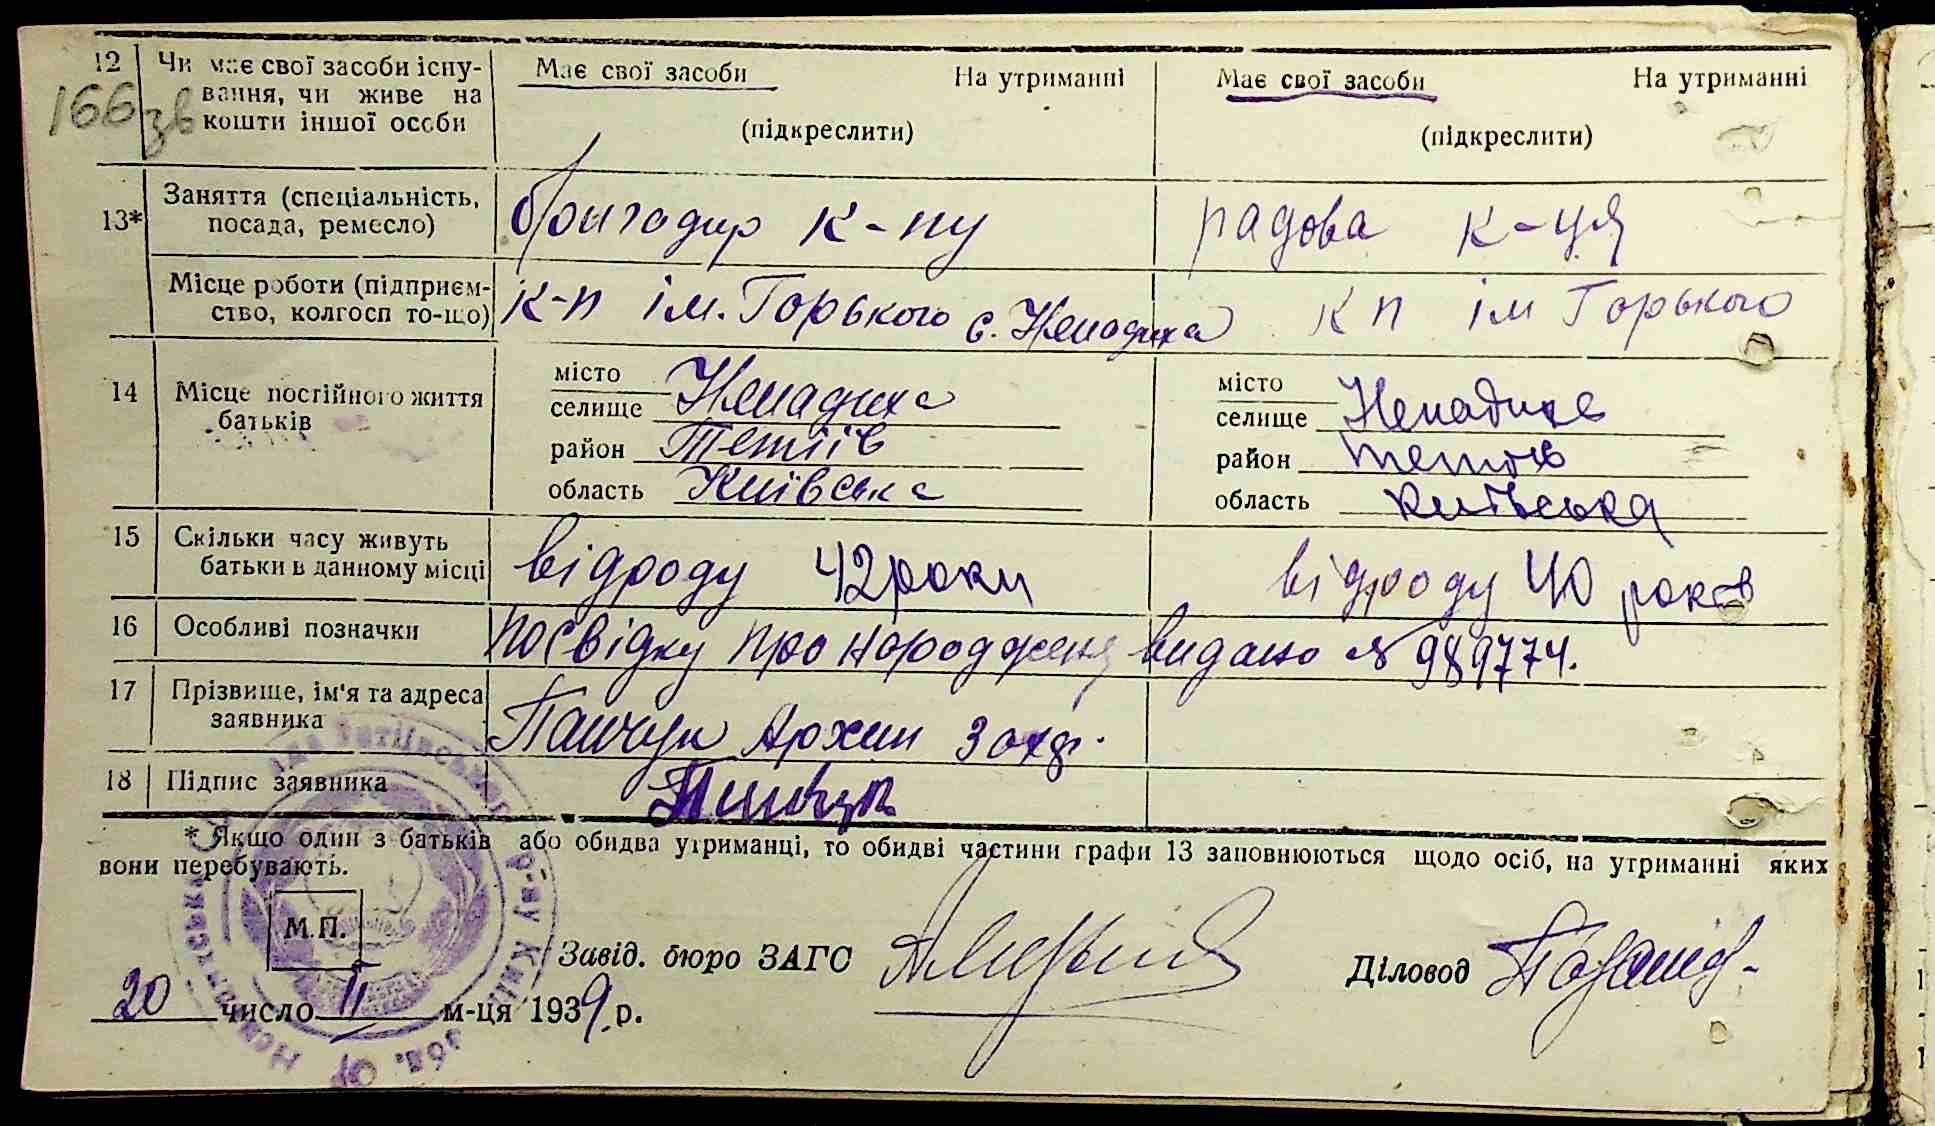 12 Чи має свої засоби існу-
вання, чи живе на
кошти іншої особи
166зв
Має свої засоби На утриманні
(підкреслити)
Має свої засоби На утриманні
(підкреслити)
13* Заняття (спеціальність,
посада, ремесло)
бригадир к-пу
радова к-ця
Місце роботи (підприєм-
ство, колгосп то-що)
к-п ім. Горького с. Ненадиха
к п ім Горького
14 Місце постійного життя
батьків
місто
селище Ненадиха
район Тетіїв
область Київська
місто
селище Ненадиха
район Тетіїв
область Київська
15 Скільки часу живуть
батьки в данному місці
відроду 42 роки
відроду 40 років
16 Особливі позначки
посвідку про народження видано № 989774.
17 Прізвище, ім'я та адреса
заявника
Панчук Архип
18 Підпис заявника
* Якщо один з батьків або обидва утриманці, то обидві частини графи 13 заповнюються щодо осіб, на утриманні яких
вони перебувають.
М.П.
Завід. бюро ЗАГС
Діловод
20 число 11 м-ця 1939 р.